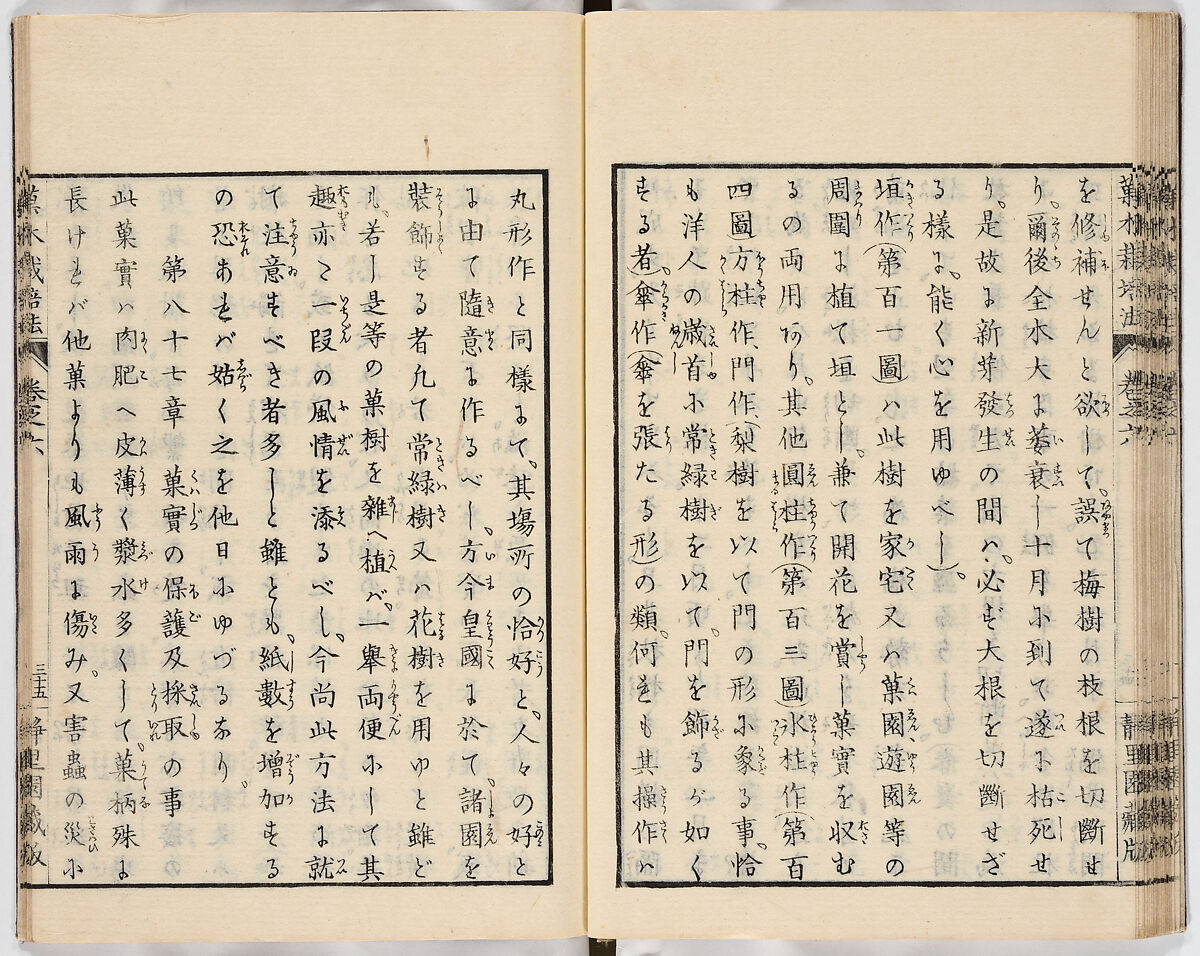 菓木栽培法 卷之六 靜里園藏版
を修補せんと欲して、誤て梅樹の枝根を切斷せ
り、爾後全木大に萎衰し十月に到て遂に枯死せ
り、是故に新芽發生の間ハ、必ず大根を切斷せざ
る樣に、能く心を用ゆべし、
垣作(第百一圖)ハ此樹を家宅又ハ菓園遊園等の
周圍に植て垣とし、兼て開花を賞し菓實を収む
るの両用なり、其他圓柱作(第百三圖)水柱作(第百
四圖)方柱作、門作(梨樹を以て門の形に象る事、恰
も洋人の歳首に常緑樹を以て、門を飾るが如く
する者)傘作(傘を張たる形)の類、何れも其操作ハ
丸形作と同樣にて、其塲所の恰好と、人々の好と
に由て隨意に作るべし、方今皇國に於て、諸園を
裝飾する者凡て常緑樹又ハ花樹を用ゆと雖ど
も、若し是等の菓樹を雜へ植バ、一擧両便にして其
趣亦た一段の風情を添るべし、今尚此方法に就
て注意すべき者多しと雖とも、紙數を増加する
の恐あれバ姑く之を他日にゆづるなり、
第八十七章 菓實の保護及採取の事
此菓實ハ肉肥へ皮薄く漿水多くして、菓柄殊に
長けれバ他菓よりも風雨に傷み、又害蟲の災に
菓木栽培法 卷之六 三十五 靜里園藏版